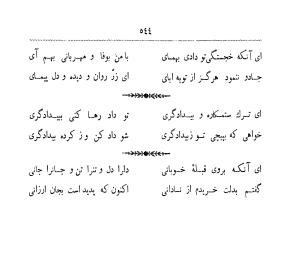 ٥٤٤
ای آنکه خجستگی تو دادی بهمای با من بوفا و مهربانی بهم آی
جادو ننمود هرگز از تو به ابای ای زر روان و دیده و دل پیمای
ای ترک ستمکاره و بیدادگری تو داد رها کنی ببیدادگری
خواهی که بپیچی تو ز بیدادگری شو دادکن و ز کرده بیدادگری
ای آنکه بروی قبلهٔ خوبانی دارا دل و تنرا تن و جانرا جانی
گفتم بدلت خریدم از نادانی اکنون که پدید است بجان ارزانی